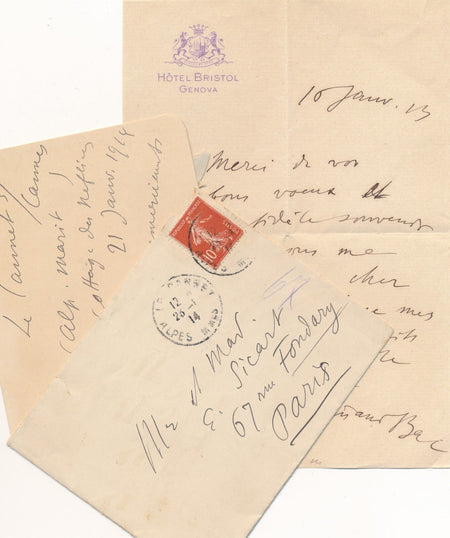 HÔTEL BRISTOL
GENOVA
10 Janv. 13
Merci de vos
bons voeux et
fidèle souvenir
vous me
cher
mes
Bac
Le Cannet s/
Cannes
(Alp. Marit)
Cottage des
21 Janv. 1914
10
LE CANNET
12
26 -1
14
ALPES MMES
67
Mr et Mad.
E. Sicart
67 rue Fondary
Paris